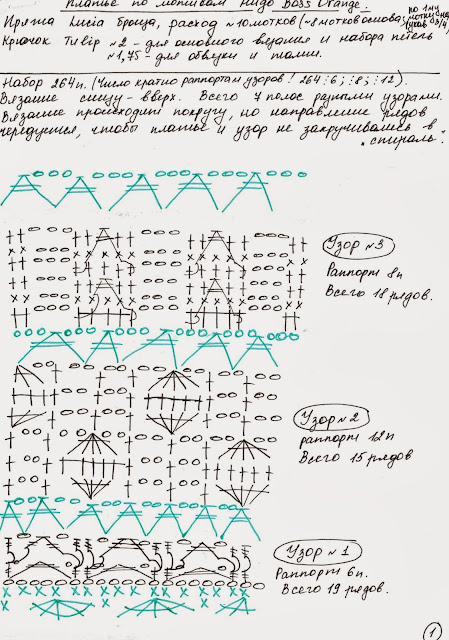 Платье по мотивам Hugo Boss Orange.
Пряжа Lucia Гроща, расход ≈10 мотков (≈8 мотков основа;
по 1му
мотку
Крючок Tulip №2 - для основного вязания и набора петель
№1,75 - для обвязки и талии.
Набор 264п. (Число кратно раппортам узоров! 264:6; :8; :12).
Вязание снизу - вверх. Всего 7 полос разными узорами.
Вязание происходит по кругу, но направление рядов
чередуется, чтобы платье и узор не закручивались в
"спираль".
Узор №3
Раппорт 8п
Всего 18 рядов.
Узор №2
раппорт 12п
Всего 15 рядов
Узор №1
Раппорт 6п.
Всего 19 рядов.
1